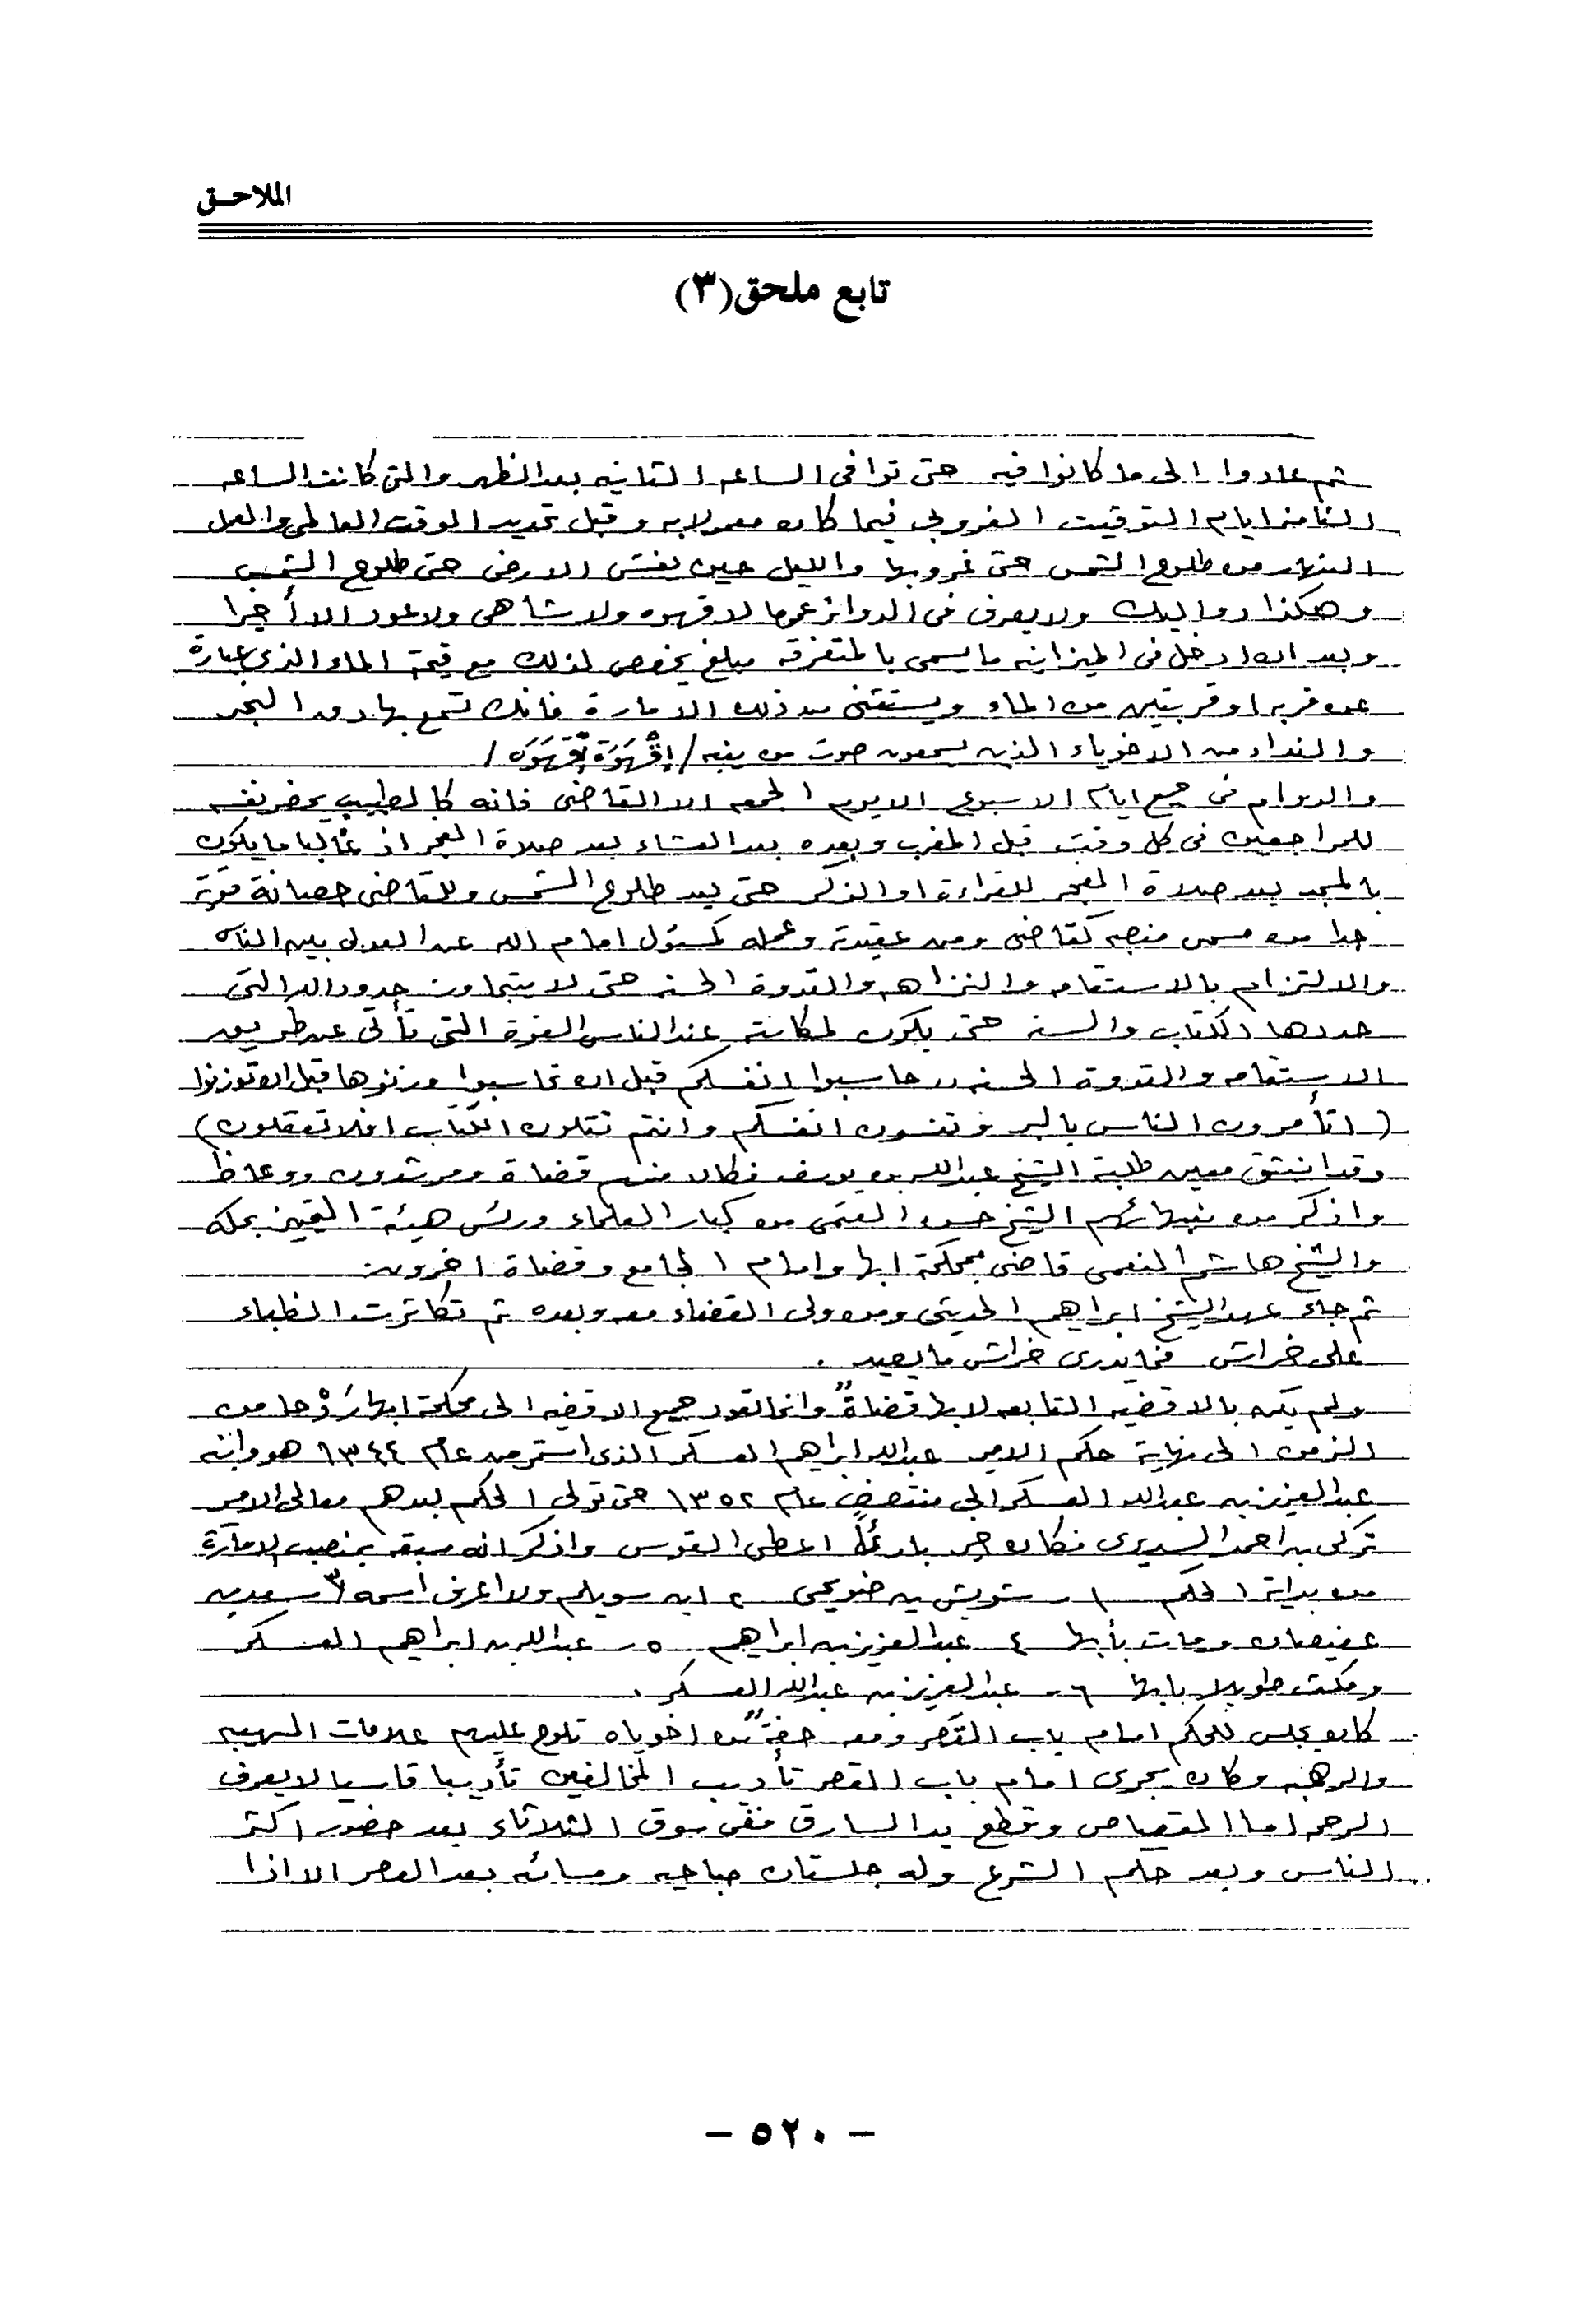 الملاحـق
تابع ملحق (٣)
ثم عادوا الى ما كانوا فيه حتى توافى الساعه الثانيه بعد الظهر والتى كانت الساعه
الثامنه ايام التوقيت الغروبي فيما كان معمولا به وقبل تحديد الوقت العالمى والعمل
النهار من طلوع الشمس حتى غروبها والليل حين يغشى الارض حتى طلوع الشمس
وهكذا دواليك ولا يعرف فى الدوائر عموما لا قهوه ولا شاهى ولا عود الا أخيرا
وبعد ان ادخل فى الميزانيه ما يسمى بالمتفرقه مبلغ يخصص لذلك مع قيمة الماء الذى عبارة
عن قربه او قربتين من الماء ويستثنى من ذلك الامارة فانك تسمع بها دق النجر
والنداء من الاخوياء الذين يسمعون صوت من ينبه / إقْهَوَة إقْهَوَه /
والدوام فى جميع ايام الاسبوع الا يوم الجمعه الا القاضى فانه كالطبيب يحضر نفسه
للمراجعين فى كل وقت قبل المغرب وبعده بعد العشاء بعد صلاة الفجر اذ غالبا ما يكون
بالمسجد بعد صلاة الفجر للقراءة او الذكر حتى بعد طلوع الشمس وللقاضى حصانة قوية
جدا من مسمى منصبه كقاضى ومن عقيدته وعمله كمسئول امام الله عن العدل بين الناس
والالتزام بالاستقامه والنزاهه والقدوة الحسنه حتى لا يتجاوز حدود الله التى
حددها الكتاب والسنه حتى يكون لمكانته عند الناس القوة التى تأتى عن طريق
الاستقامه والقدوة الحسنه ,, حاسبوا انفسكم قبل ان تحاسبوا وزنوها قبل ان توزنوا
( اتأمرون الناس بالبر وتنسون انفسكم وانتم تتلون الكتاب افلا تعقلون )
وقد انبثق معين طلبة الشيخ عبدالله بن يوسف فكان منهم قضاة ومرشدون ووعاظ
واذكر من نبهائهم الشيخ حسن العتمى من كبار العلماء ورئس هيئة التمييز بمكه
والشيخ هاشم النعمى قاضى محكمة ابها وامام الجامع وقضاة اخرون
ثم جاء عهد الشيخ ابراهيم الحديثى ومن ولى القضاء معه وبعده ثم تكاثرت الظباء
على خراش فما يدرى خراش ما يصيد .
ولم يكن بالاقضيه التابعه لابها قضاةً وانما تعود جميع الاقضيه الى محكمة ابها ردْحا من
الزمن الى نهاية حكم الامير عبدالله ابراهيم العسكر الذى استمر من عام ١٣٤٤ هو وابنه
عبدالعزيز بن عبدالله العسكر الى منتصف عام ١٣٥٢ حتى تولى الحكم بعدهم معالى الامير
تركى بن احمد السديرى فكان خير بارئًا اعطى القوس واذكر انه سبقه بمنصب الامارة
من بداية الحكم ١ - شويش بن ضويحى ٢ ابن سويلم ولا اعرف اسمه ٣ سعد بن
عفيصان ومات بأبها ٤ عبدالعزيز بن ابراهيم ٥ - عبدالله بن ابراهيم العسكر
ومكث طويلا بابها ٦ - عبدالعزيز بن عبدالله العسكر .
كان يجلس للحكم امام باب القصر ومعه حفنةً من اخوياه تلوح عليهم علامات الهيبه
والرهبه وكان يجرى امام باب القصر تأديب المخالفين تأديبا قاسيا لا يعرف
الرحمه اما القصاص وقطع يد السارق ففى سوق الثلاثاء بعد حضور اكثر
الناس وبعد حكم الشرع وله جلستان صباحيه ومسائه بعد العصر الا اذا
- ٥٢٠ -